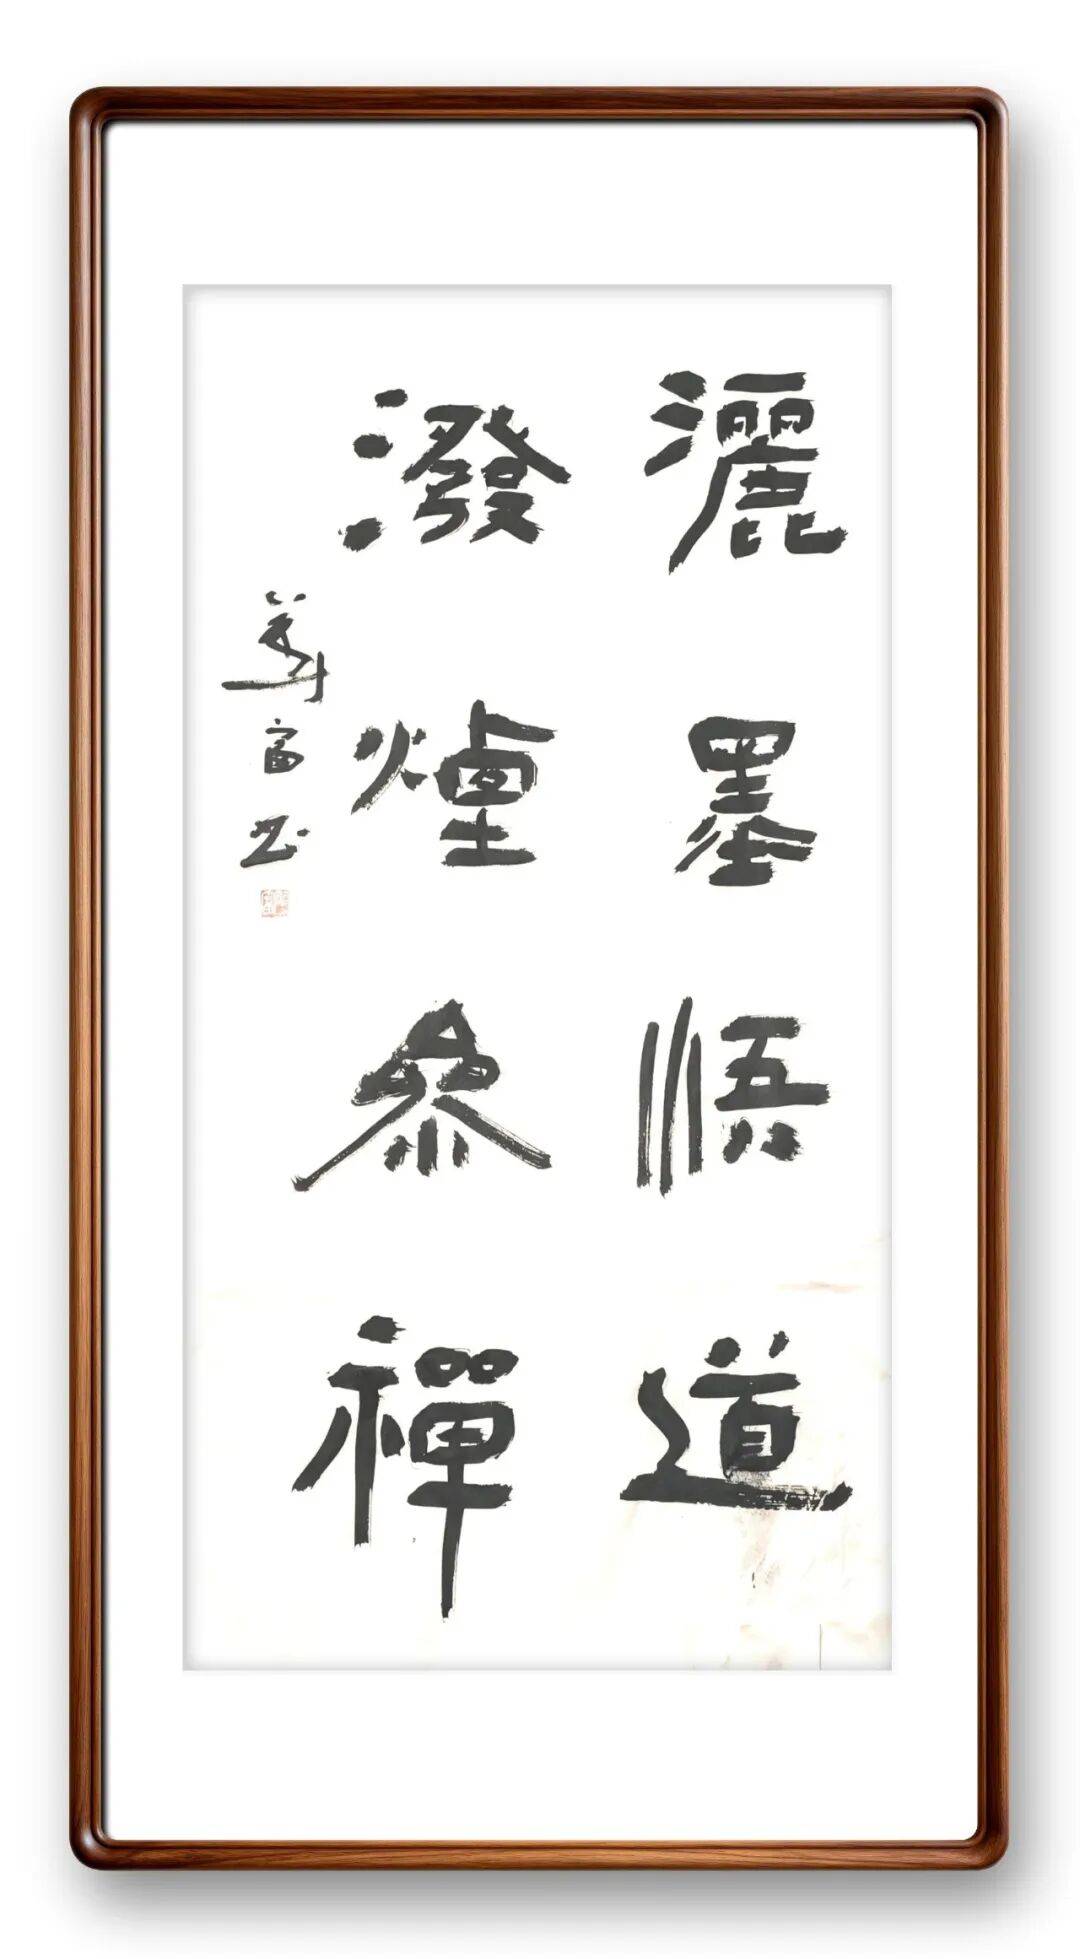 灑墨悟道
潑煙參禪
富书